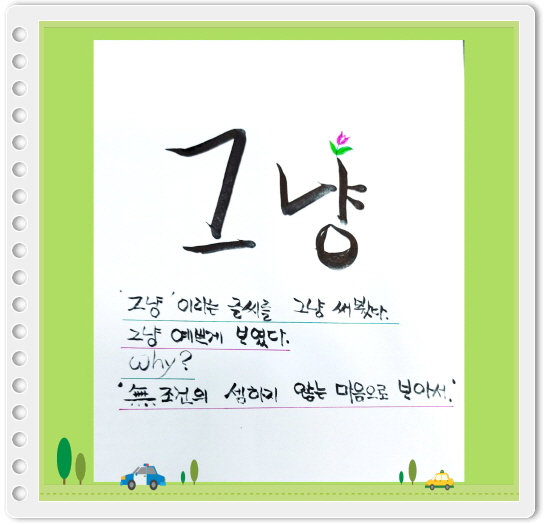 그냥
'그냥'이라는 글씨를 그냥 써봤다.
그냥 예쁘게 보였다.
Why?
"無조건의 셈하지 않는 마음으로 보아서."